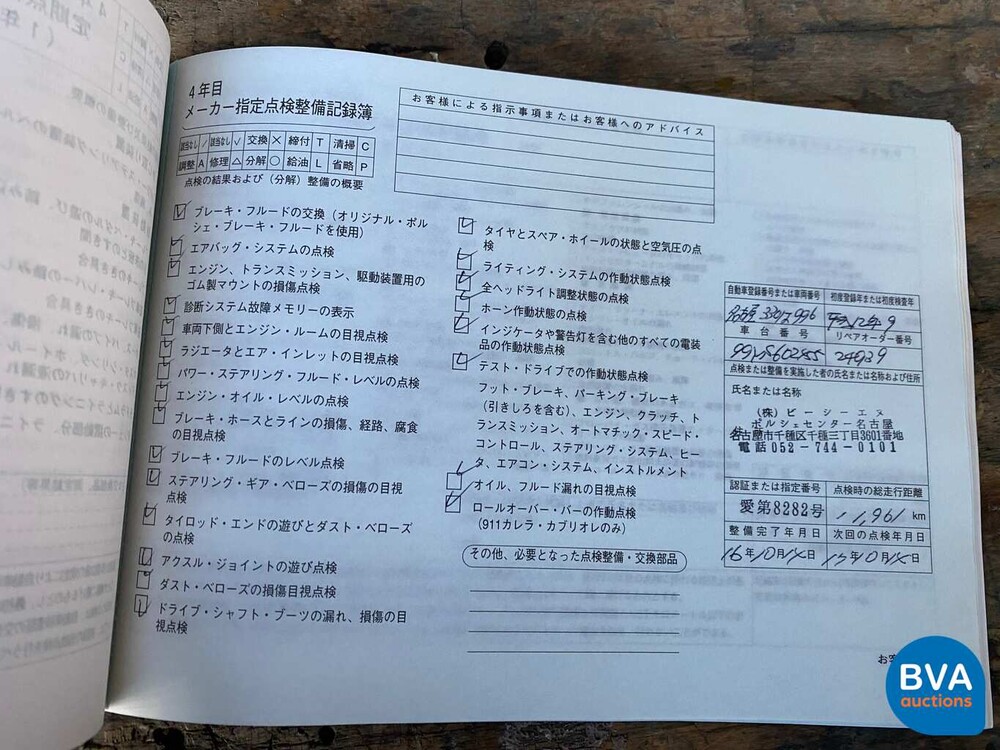 4年目
メーカー指定点検整備記録簿
該当なし / 該当なし √ 交換 × 締付 T 清掃 C
調整 A 修理 △ 分解 ○ 給油 L 省略 P
点検の結果および(分解)整備の概要
お客様による指示事項またはお客様へのアドバイス
ブレーキ・フルードの交換(オリジナル・ポル
シェ・ブレーキ・フルードを使用)
エアバッグ・システムの点検
エンジン、トランスミッション、駆動装置用の
ゴム製マウントの損傷点検
診断システム故障メモリーの表示
車両下側とエンジン・ルームの目視点検
ラジエータとエア・インレットの目視点検
パワー・ステアリング・フルード・レベルの点検
エンジン・オイル・レベルの点検
ブレーキ・ホースとラインの損傷、経路、腐食
の目視点検
ブレーキ・フルードのレベル点検
ステアリング・ギア・ベローズの損傷の目視
点検
タイロッド・エンドの遊びとダスト・ベローズ
の点検
アクスル・ジョイントの遊び点検
ダスト・ベローズの損傷目視点検
ドライブ・シャフト・ブーツの漏れ、損傷の目
視点検
タイヤとスペア・ホイールの状態と空気圧の点
検
ライティング・システムの作動状態点検
全ヘッドライト調整状態の点検
ホーン作動状態の点検
インジケータや警告灯を含む他のすべての電装
品の作動状態点検
テスト・ドライブでの作動状態点検
フット・ブレーキ、パーキング・ブレーキ
(引きしろを含む)、エンジン、クラッチ、ト
ランスミッション、オートマチック・スピード・
コントロール、ステアリング・システム、ヒー
タ、エアコン・システム、インストルメント
オイル、フルード漏れの目視点検
ロールオーバー・バーの作動点検
(911カレラ・カブリオレのみ)
その他、必要となった点検整備・交換部品
自動車登録番号または車両番号 初度登録年または初度検査年
平成12年9
車台番号 リペアオーダー番号
24929
点検または整備を実施した者の氏名または名称および住所
氏名または名称
(株)ピーシーエヌ
ポルシェセンター名古屋
名古屋市千種区千種三丁目3601番地
電話052-744-0101
認証または指定番号 点検時の総走行距離
愛第8282号 11,961 km
整備完了年月日 次回の点検年月日
16年10月15日 17年10月15日
お客
BVA
auctions